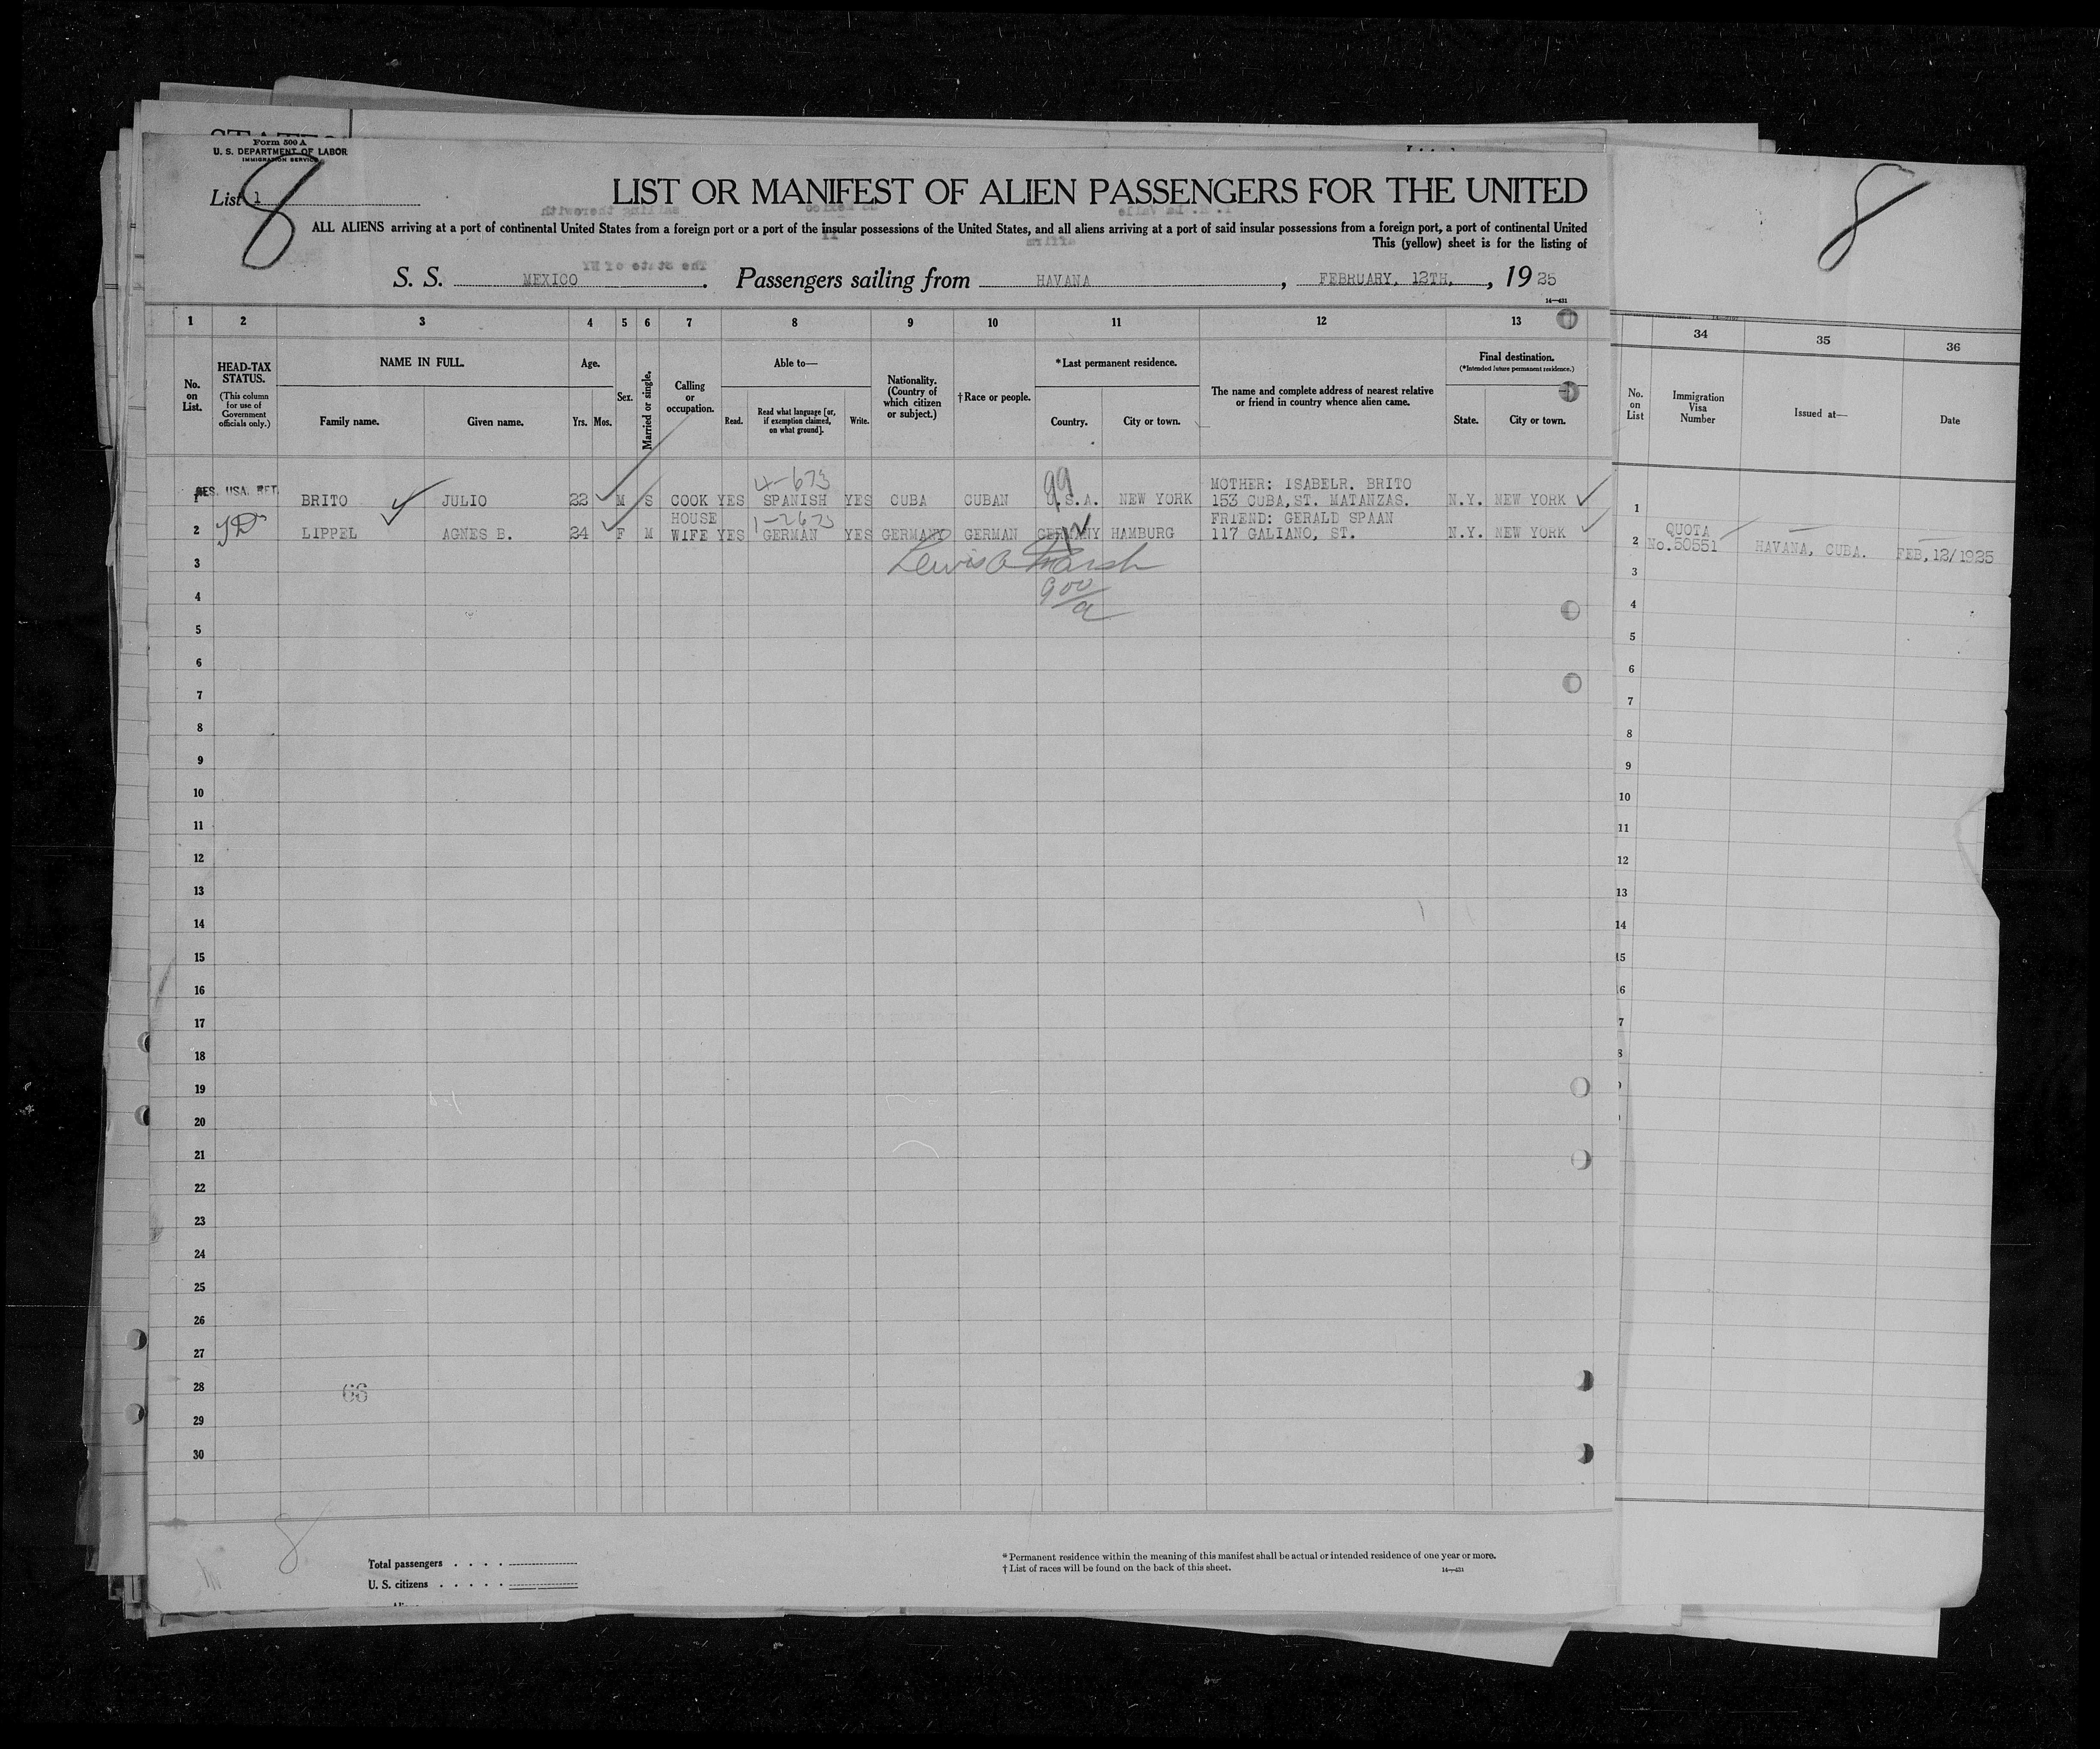 Form 500 A
U. S. DEPARTMENT OF LABOR
IMMIGRATION SERVICE
List 1
8
8
LIST OR MANIFEST OF ALIEN PASSENGERS FOR THE UNITED
ALL ALIENS arriving at a port of continental United States from a foreign port or a port of the insular possessions of the United States, and all aliens arriving at a port of said insular possessions from a foreign port, a port of continental United
This (yellow) sheet is for the listing of
S. S. MEXICO. Passengers sailing from HAVANA, FEBRUARY, 12TH, , 1925
14—431
1 2 3 4 5 6 7 8 9 10 11 12 13 34 35 36
No. on List.
HEAD-TAX STATUS.
(This column for use of Government officials only.)
NAME IN FULL.
Family name. Given name.
Age.
Yrs. Mos.
Sex.
Married or single.
Calling or occupation.
Able to—
Read. Read what language [or, if exemption claimed, on what ground]. Write.
Nationality. (Country of which citizen or subject.)
†Race or people.
*Last permanent residence.
Country. City or town.
The name and complete address of nearest relative or friend in country whence alien came.
Final destination.
(*Intended future permanent residence.)
State. City or town.
No. on List
Immigration Visa Number
Issued at—
Date
4-673
99
MOTHER: ISABELR. BRITO
1 RES. USA. RET. BRITO JULIO 22 M S COOK YES SPANISH YES CUBA CUBAN U.S.A. NEW YORK 153 CUBA, ST. MATANZAS. N.Y. NEW YORK
1
HOUSE 1-2625 FRIEND: GERALD SPAAN
2 LIPPEL AGNES B. 24 F M WIFE YES GERMAN YES GERMANY GERMAN GERMANY HAMBURG 117 GALIANO, ST. N.Y. NEW YORK
2 QUOTA No. 50551 HAVANA, CUBA. FEB, 12/1925
Lewis A Marsh
900/a
3
4
5
6
7
8
9
10
11
12
13
14
15
16
17
18
19
20
21
22
23
24
25
26
27
28
29
30
3
4
5
6
7
8
9
10
11
12
13
14
15
66
8
Total passengers . . . .
U. S. citizens . . . . .
*Permanent residence within the meaning of this manifest shall be actual or intended residence of one year or more.
†List of races will be found on the back of this sheet.
14—431